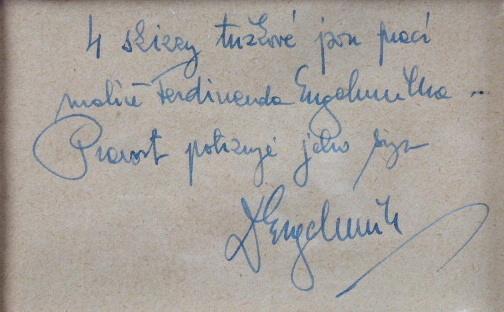 4 skizzy tužkové jsou prací
malíře Ferdinanda Engelmüllera ...
Pravost potvrzuje jeho syn
Engelmüller